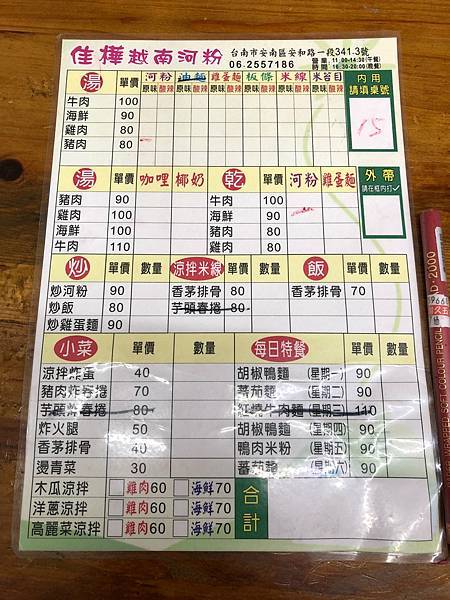 佳樺越南河粉 台南市安南區安和路一段341.3號
06.2557186 營業時間 11:00-14:30(午餐) 16:30-20:00(晚餐)
湯 單價 河粉 油麵 雞蛋麵 板條 米線 米苔目 內用 請填桌號
原味 酸辣 原味 酸辣 原味 酸辣 原味 酸辣 原味 酸辣 原味 酸辣
牛肉 100
海鮮 90 15
雞肉 80
豬肉 80
湯 單價 咖哩 椰奶 乾 單價 河粉 雞蛋麵 外帶 請在框內打✓
豬肉 90 牛肉 100
雞肉 90 海鮮 90
海鮮 100 雞肉 80
牛肉 110 豬肉 80
炒 單價 數量 涼拌米線 單價 數量 飯 單價 數量
炒河粉 90 香茅排骨 80 香茅排骨 70
炒飯 80 芋頭春捲 80
炒雞蛋麵 90
小菜 單價 數量 每日特餐 單價 數量
涼拌炸蛋 40 胡椒鴨麵 (星期一) 90
豬肉炸春捲 70 蕃茄麵 (星期二) 90
芋頭炸春捲 80 紅燒牛肉麵 (星期三) 110
炸火腿 50 胡椒鴨麵 (星期四) 90
香茅排骨 40 鴨肉米粉 (星期五) 90
燙青菜 30 蕃茄麵 (星期六) 90
木瓜涼拌 雞肉60 海鮮70 合計
洋蔥涼拌 雞肉60 海鮮70
高麗菜涼拌 雞肉60 海鮮70